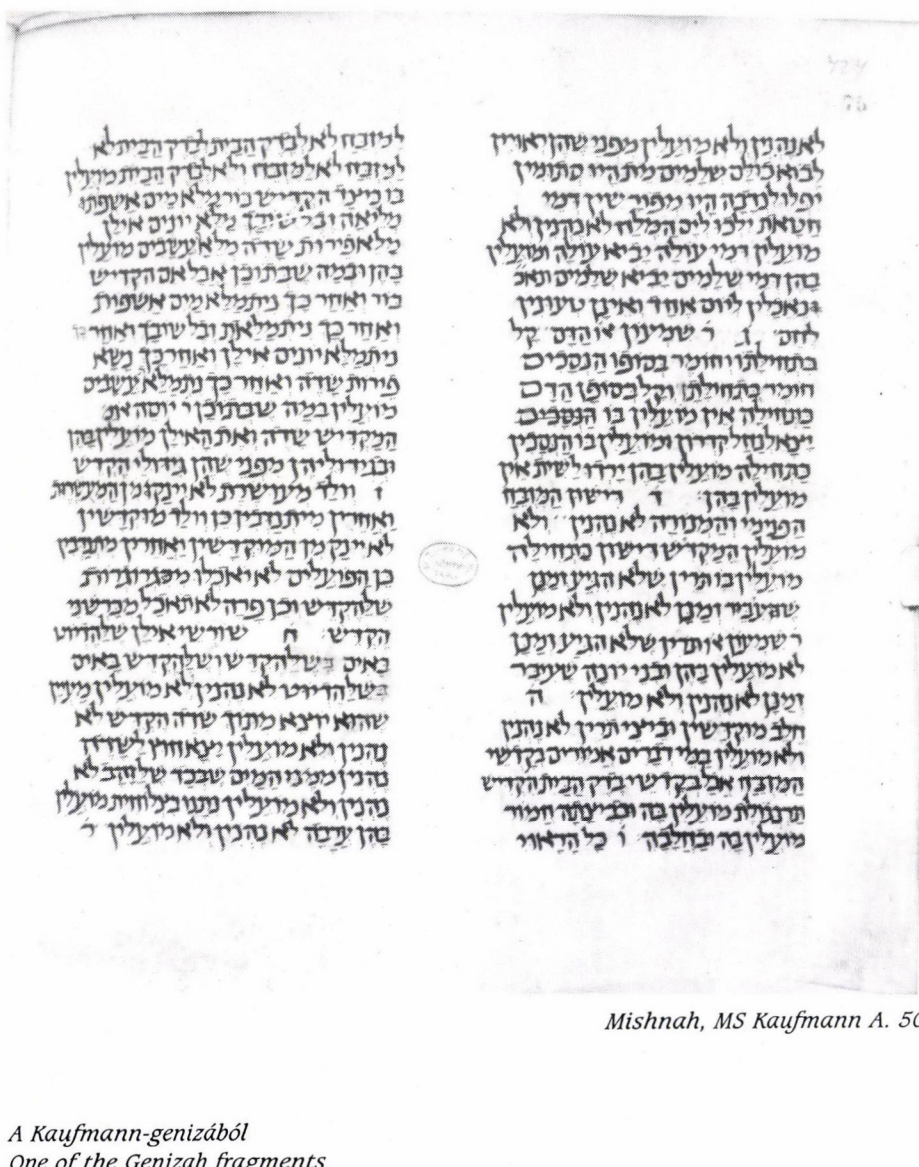 724
75
לא נהנין ולא מועלין מפני שהן ראויין
לבוא כולם שלמים מת היו סתומין
יפלו לנדבה היו מפורשין דמי
חטאת ילכו לים המלח לא נהנין ולא
מועלין דמי עולה יביא עולה ומועלין
בהן דמי שלמים יביא שלמים
נאכלין ליום אחד ואינן טעונין
לחם ג ר שמעון או הדם קל
בתחילתו וחומר בסופו הנסכים
חומר בתחילתן וקל בסופן הדם
כתחילה אין מועלין בו הנסכים
יצא לנחל קדרון ומועלין בו הנסכין
כתחילה מועלין בהן ירדו לשית אין
מועלין בהן ד דישון המזבח
הפנימי והמנורה לא נהנין ולא
מועלין המקדש דישון כתחילה
מועלין בו תרין שלא הגיע זמנן
שהעביר זמנן לא נהנין ולא מועלין
ר שמעון או תרין שלא הגיע זמנן
לא מועלין בהן ובני יונה שעיבר
זמנן לא נהנין ולא מועלין ה
חלב מוקדשין וביצי תרין לא נהנין
ולא מועלין במי דברים אמורים בקדשי
המזבח אבל בקדשי בדק הבית הקדש
תרנגולת מועלין בה ובביצתה חמור
מועלין בה ובחלבה ו כל הראוי
למזבח לא לבדק הבית לבדק הבית לא
למזבח לא למזבח ולא לבדק הבית מועלין
בו כיצד הקדיש בור מלא מים אשפתו
מליאה זבל שובך מלא יונים אילן
מלא פירות שדה מלא עשבים מועלין
בהן ובמה שבתוכן אבל אם הקדיש
בור ואחר כך ניתמלא מים אשפות
ואחר כך ניתמלאת זבל שובך ואחר כך
ניתמלא יונים אילן ואחר כך נשא
פירות שדה ואחר כך נתמלא עשבים
מועלין במה שבתוכן ר יוסה אמ
המקדיש שדה ואת האילן מועלין בהן
ובגידוליהן מפני שהן גידולי הקדש
ז וולד מעושרת לא יינק מן המעושרת
ואחרין מיתנדבין כן וולד מוקדשין
לא יינק מן המוקדשין ואחרין מתנדבין
כן הפועלים לא יאכלו מגרוגרות
שלהקדש וכן פרה לא תאכל מכרשני
הקדש ח שורשי אילן שלהדיוט
באים בשלהקדש ושלהקדש באים
בשלהדיוט לא נהנין לא מועלין מעין
שהוא יוצא מתוך שדה הקדש לא
נהנין ולא מועלין יצא חוץ לשדה
נהנין ממנו המים שבכד שלזהב לא
נהנין ולא מועלין נתנו בצלוחית מועלין
בהן ערבה לא נהנין ולא מועלין ר
Mishnah, MS Kaufmann A. 50
A Kaufmann-genizából
One of the Genizah fragments